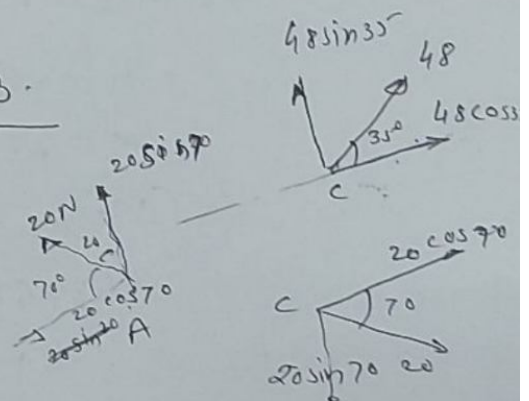 48sin35
48
48cos3
35°
C
20sin70
20N
20
70°
20 cos70
A
20 cos70
C
70
20sin70
20